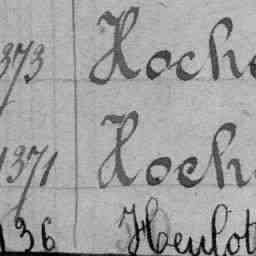 373 Hoche
1371 Hoch
136 Heulot